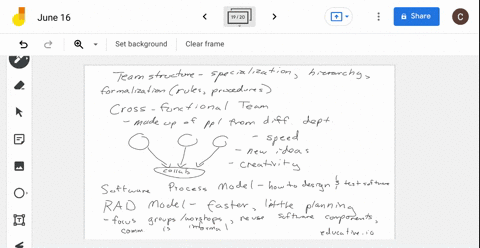 June 16
19 / 20
Share
C
Set background
Clear frame
Team structure - specialization, hierarchy,
formalization (rules, procedures)
Cross-functional Team
- made up of ppl from diff dept
- speed
- new ideas
- creativity
collab
Software Process Model - how to design & test software
RAD Model - faster, little planning
- focus groups/workshops, reuse software components,
comm is informal
educative.io